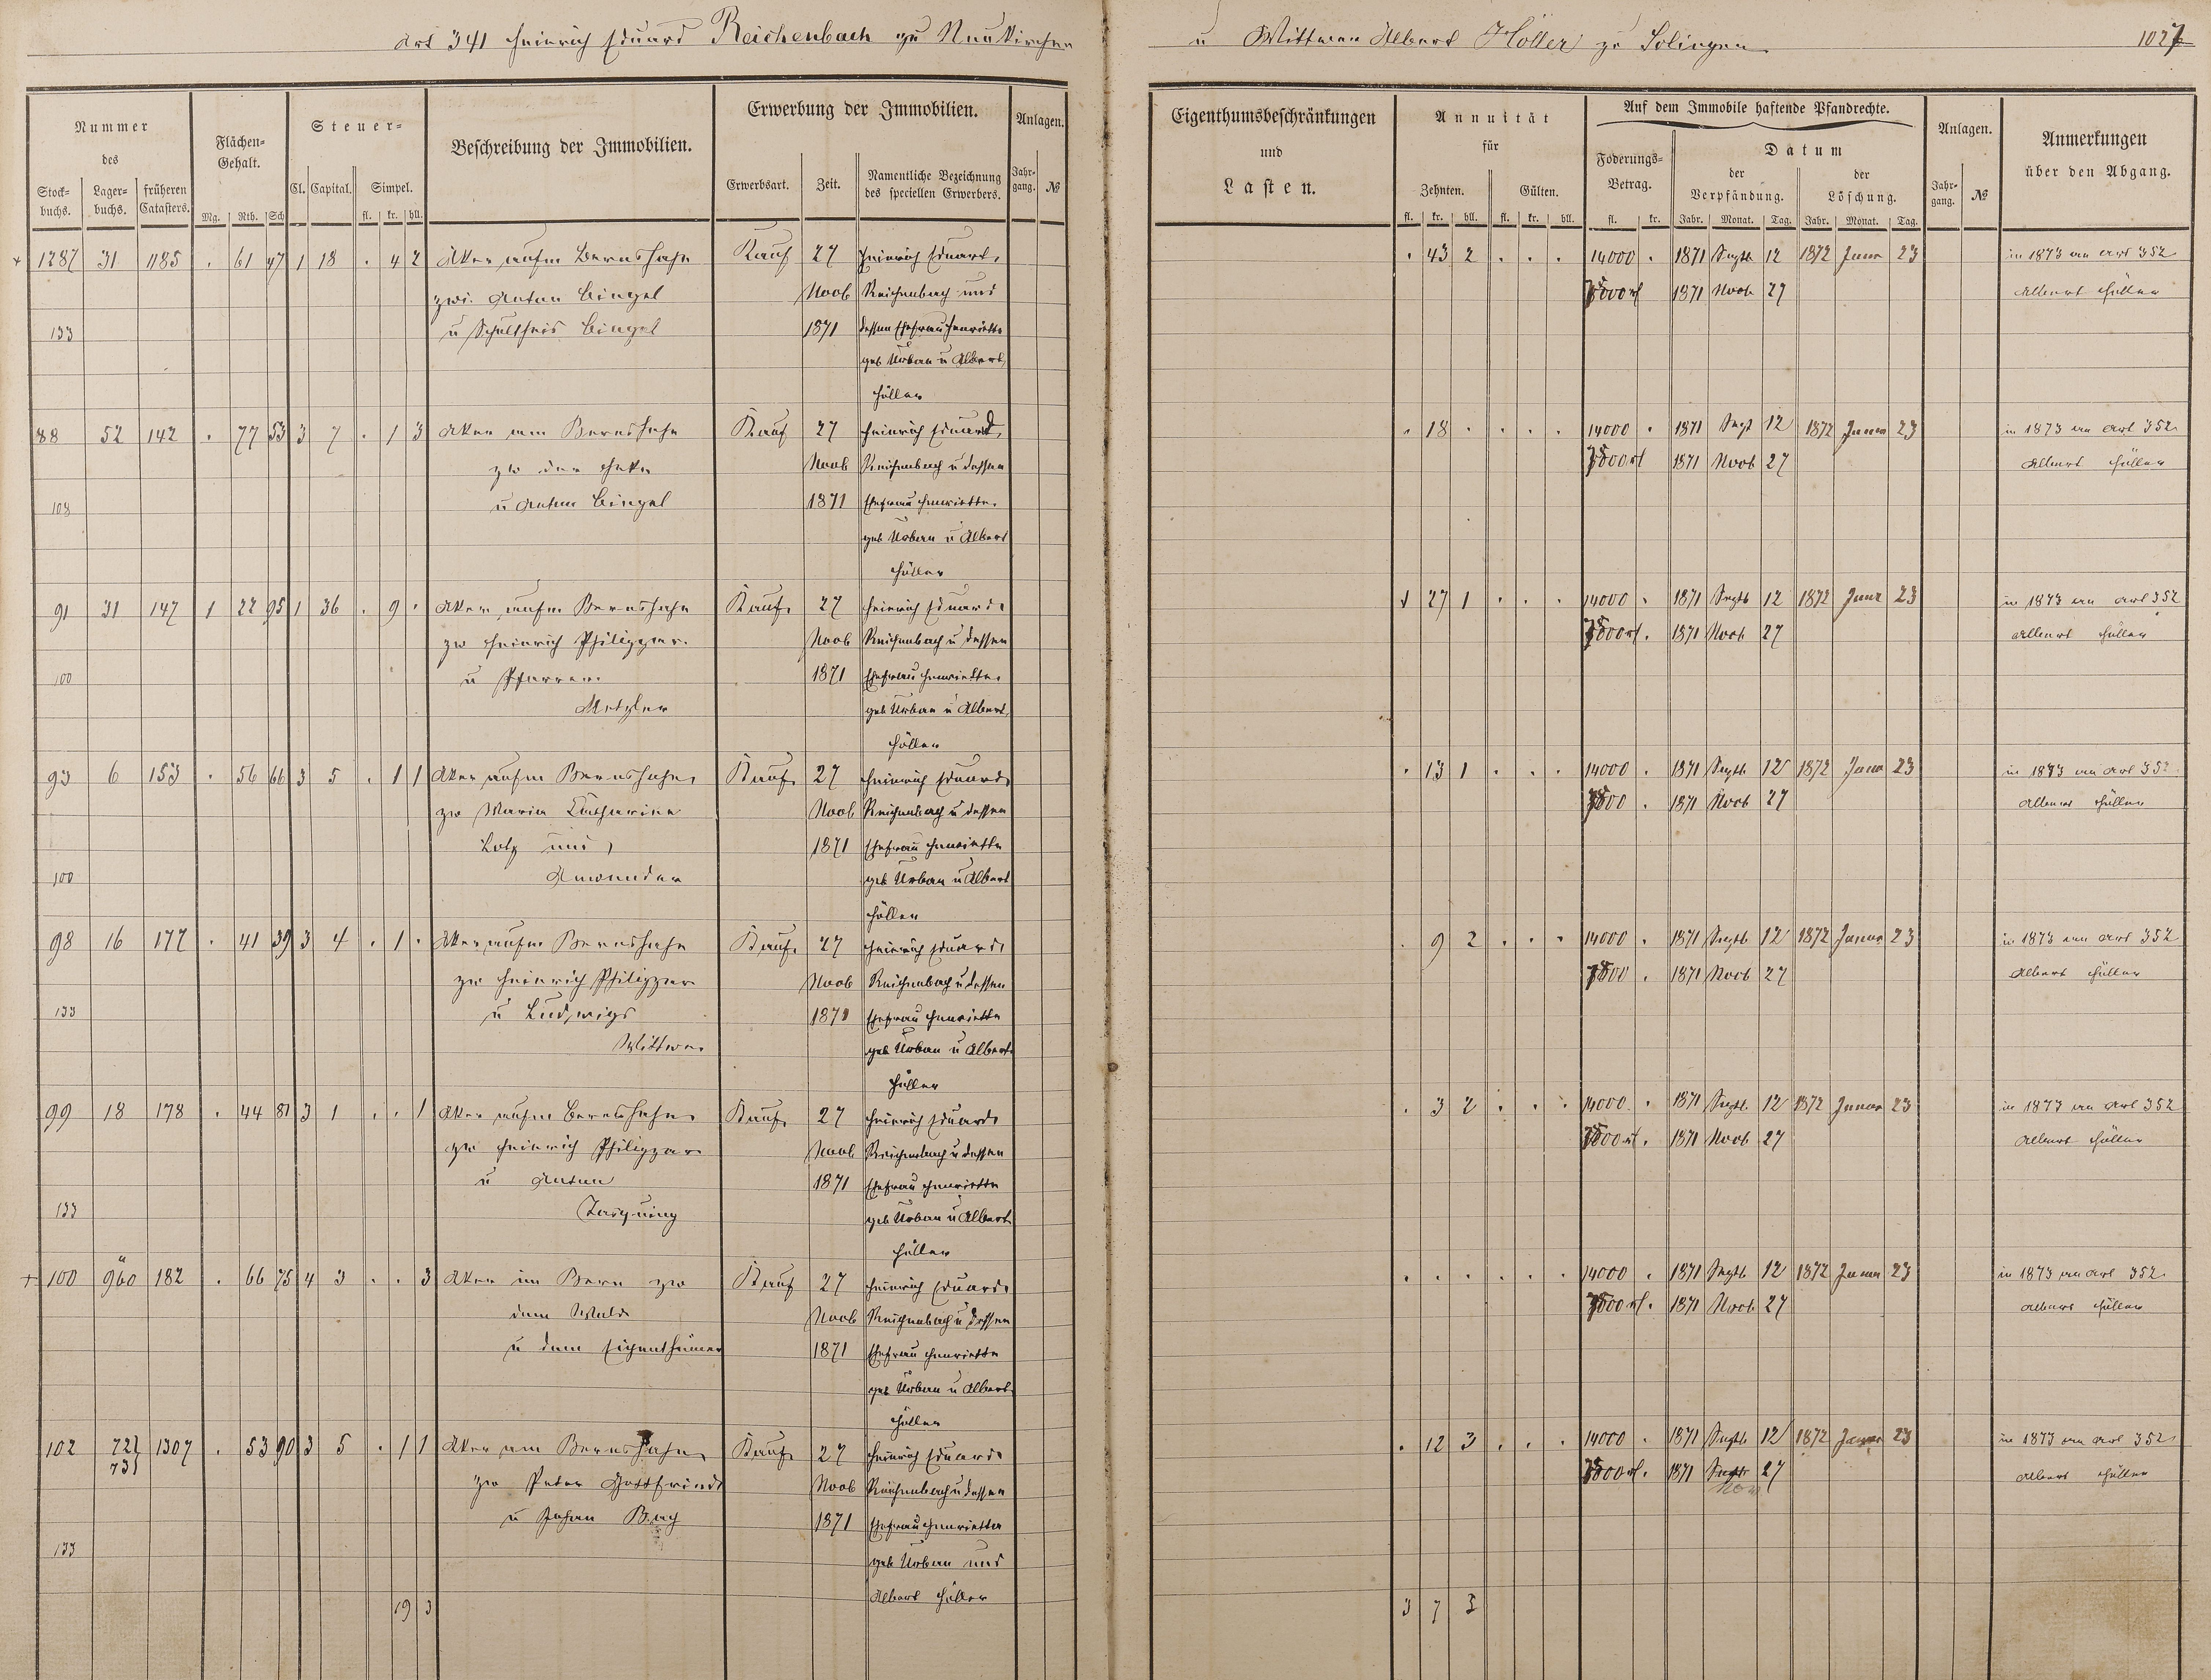 Art 341 Heinrich Eduard Reichenbach zu Neukirchen
u Wittwer Albert Höller zu Solingen
1027
Nummer des
Stockbuchs. Lagerbuchs. früheren Catasters.
Flächen-Gehalt.
Mg. Rth. Sch
Steuer-
Cl. Capital. Simpel.
fl. kr. hll.
Beschreibung der Immobilien.
Erwerbung der Immobilien.
Erwerbsart. Zeit. Namentliche Bezeichnung des speciellen Erwerbers.
Anlagen.
Jahrgang. №
Eigenthumsbeschränkungen
und
Lasten.
Annuität
für
Zehnten. Gülten.
fl. kr. hll. fl. kr. hll.
Auf dem Immobile haftende Pfandrechte.
Foderungs-Betrag.
fl. kr.
Datum
der Verpfändung. der Löschung.
Jahr. Monat. Tag. Jahr. Monat. Tag.
Anlagen.
Jahrgang. №
Anmerkungen
über den Abgang.
1287 31 1185 . 61 47 1 18 . 4 2 Aker aufm Bernshahn Kauf 27 Heinrich Eduard . 43 2 . . . 14000 . 1871 Septb 12 1872 Janr 23 in 1873 an Art 352
zwi. Anton Bingel Novb Reichenbach und 1871 Novb 27 Albert Höller
133 u Schultheis Bingel 1871 dessen Ehefrau Henriette
geb Urban u Albert
Höller
88 52 142 . 77 53 3 7 . 1 3 Aker am Bernshahn Kauf 27 Heinrich Eduard . 18 . . . . 14000 . 1871 Sept 12 1872 Janr 23 in 1873 an Art 352
zw der Heke Novb Reichenbach u dessen 1871 Novb 27 Albert Höller
108 u Anton Bingel 1871 Ehefrau Henriette
geb Urban u Albert
Höller
91 31 147 1 22 95 1 36 . 9 . Aker aufm Bernshahn Kauf 27 Heinrich Eduard 1 27 1 . . . 14000 . 1871 Septb 12 1872 Janr 23 in 1873 an Art 352
zw Heinrich Philippar Novb Reichenbach u dessen 1871 Novb 27 Albert Höller
100 u Pfarrer 1871 Ehefrau Henriette
Metzler geb Urban u Albert
Höller
93 6 153 . 56 66 3 5 . 1 1 Aker aufm Bernshahn Kauf 27 Heinrich Eduard . 13 1 . . . 14000 . 1871 Septb 12 1872 Janr 23 in 1873 an Art 352
zw Maria Catharina Novb Reichenbach u dessen 1871 Novb 27 Albert Höller
Lotz und 1871 Ehefrau Henriette
100 Anwender geb Urban u Albert
Höller
98 16 177 . 41 39 3 4 . 1 . Aker aufm Bernshahn Kauf 27 Heinrich Eduard . 9 2 . . . 14000 . 1871 Septb 12 1872 Januar 23 in 1873 an Art 352
zw Heinrich Philippar Novb Reichenbach u dessen 1871 Novb 27 Albert Höller
133 u Ludwigs 1871 Ehefrau Henriette
Wittwe geb Urban u Albert
Höller
99 18 178 . 44 81 3 1 . . 1 Aker aufm Bernshahn Kauf 27 Heinrich Eduard . 3 2 . . . 14000 . 1871 Septb 12 1872 Januar 23 in 1873 an Art 352
zw Heinrich Philippar Novb Reichenbach u dessen 1871 Novb 27 Albert Höller
u Anton 1871 Ehefrau Henriette
133 geb Urban u Albert
Höller
100 960 182 . 66 75 4 3 . . 3 Aker im Bern zw Kauf 27 Heinrich Eduard . . . . . . 14000 . 1871 Septb 12 1872 Januar 23 in 1873 an Art 352
dem Wald Novb Reichenbach u dessen 1871 Novb 27 Albert Höller
u dem Eigenthümer 1871 Ehefrau Henriette
geb Urban u Albert
Höller
102 72 1307 . 53 90 3 5 . 1 1 Aker am Bernshahn Kauf 27 Heinrich Eduard . 12 3 . . . 14000 . 1871 Septb 12 1872 Januar 23 in 1873 an Art 352
73 zw Peter Gottfried Novb Reichenbach u dessen 1871 Septb 27 Albert Höller
Nov
u Johan Bach 1871 Ehefrau Henrietta
133 geb Urban und
Albert Höller
19 3 3 7 3